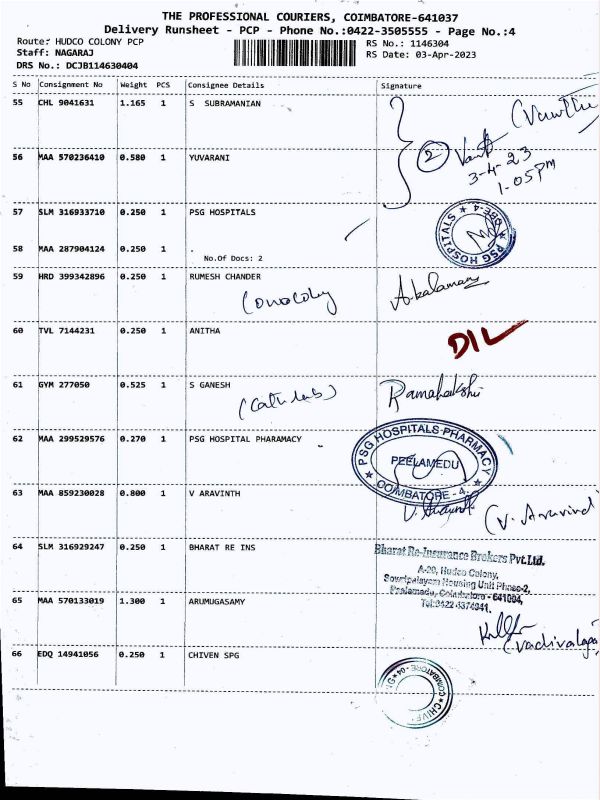 THE PROFESSIONAL COURIERS, COIMBATORE-641037
Delivery Runsheet - PCP - Phone No.:0422-3505555 - Page No.:4
Route: HUDCO COLONY PCP
Staff: NAGARAJ
DRS No.: DCJB114630404
RS No.: 1146304
RS Date: 03-Apr-2023
S No Consignment No Weight PCS Consignee Details Signature
55 CHL 9041631 1.165 1 S SUBRAMANIAN
56 MAA 570236410 0.580 1 YUVARANI
2
3-4-23
1-05PM
57 SLM 316933710 0.250 1 PSG HOSPITALS
PSG HOSPITALS
58 MAA 287904124 0.250 1 .
No.Of Docs: 2
59 HRD 399342896 0.250 1 RUMESH CHANDER
60 TVL 7144231 0.250 1 ANITHA
DIL
61 GYM 277050 0.525 1 S GANESH
(Cath lab)
62 MAA 299529576 0.270 1 PSG HOSPITAL PHARAMACY
PSG HOSPITALS PHARMACY
PEELAMEDU
COIMBATORE - 4.
63 MAA 859230028 0.800 1 V ARAVINTH
(V. Aravind)
64 SLM 316929247 0.250 1 BHARAT RE INS
Bharat Re-Insurance Brokers Pvt.Ltd.
A-99, Hudco Colony,
Sowripalayam Housing Unit Phase-2,
Peelamedu, Coimbatore - 641004,
65 MAA 570133019 1.300 1 ARUMUGASAMY
66 EDQ 14941056 0.250 1 CHIVEN SPG